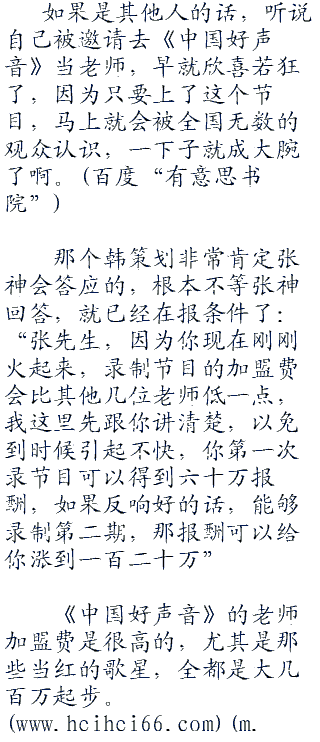 如果是其他人的话，听说
自己被邀请去《中国好声
音》当老师，早就欣喜若狂
了，因为只要上了这个节
目，马上就会被全国无数的
观众认识，一下子就成大腕
了啊。(百度“有意思书
院”)
那个韩策划非常肯定张
神会答应的，根本不等张神
回答，就已经在报条件了：
“张先生，因为你现在刚刚
火起来，录制节目的加盟费
会比其他几位老师低一点，
我这里先跟你讲清楚，以免
到时候引起不快，你第一次
录节目可以得到六十万报
酬，如果反响好的话，能够
录制第二期，那报酬可以给
你涨到一百二十万”
《中国好声音》的老师
加盟费是很高的，尤其是那
些当红的歌星，全都是大几
百万起步。
(www.hcihci66.com)(m.